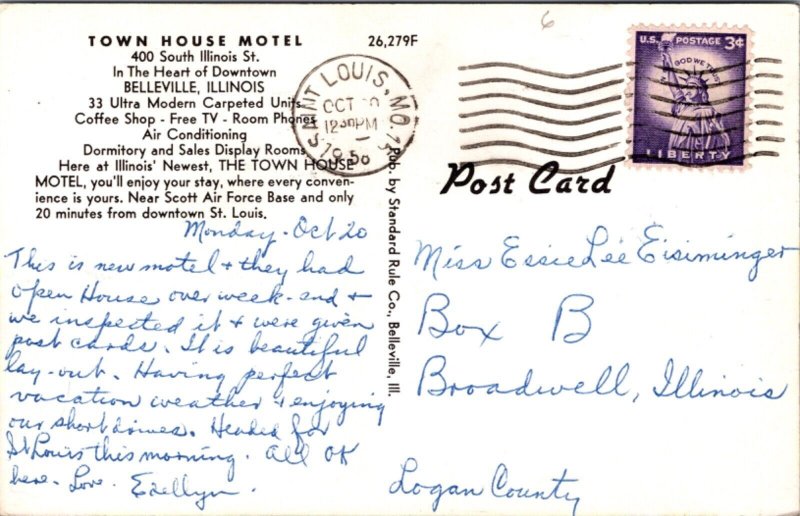 TOWN HOUSE MOTEL 26,279F
400 South Illinois St.
In The Heart of Downtown
BELLEVILLE, ILLINOIS
33 Ultra Modern Carpeted Units
Coffee Shop - Free TV - Room Phones
Air Conditioning
Dormitory and Sales Display Rooms
Here at Illinois' Newest, THE TOWN HOUSE
MOTEL, you'll enjoy your stay, where every conven-
ience is yours. Near Scott Air Force Base and only
20 minutes from downtown St. Louis.
Monday - Oct 20
This is new motel + they had
open House over week-end +
we inspected it + were given
post cards. It is beautiful
lay-out. Having perfect
vacation weather + enjoying
our short drives. Headed for
St Louis this morning. All OK
here. Love. Ezellyn.
Pub. by Standard Rule Co., Belleville, Ill.
6
SAINT LOUIS, MO.
OCT 20
12 30 PM
1958
U.S. POSTAGE 3¢
IN GOD WE TRUST
LIBERTY
Post Card
Miss Essie Lee Eisiminger
Box B
Broadwell, Illinois
Logan County